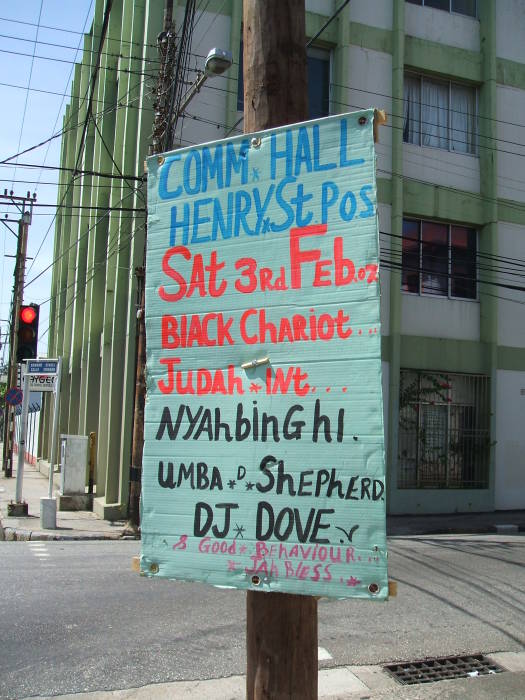 COMM. HALL
HENRY St POS
SAT 3Rd FEb. 07
BlACK CHARIOT...
JUDAH * INT...
NYAHbINGHI.
UMBA * D * SHEPHERD
DJ * DOVE
& Good * BEHAVIOUR...
* JAH BLESS. *